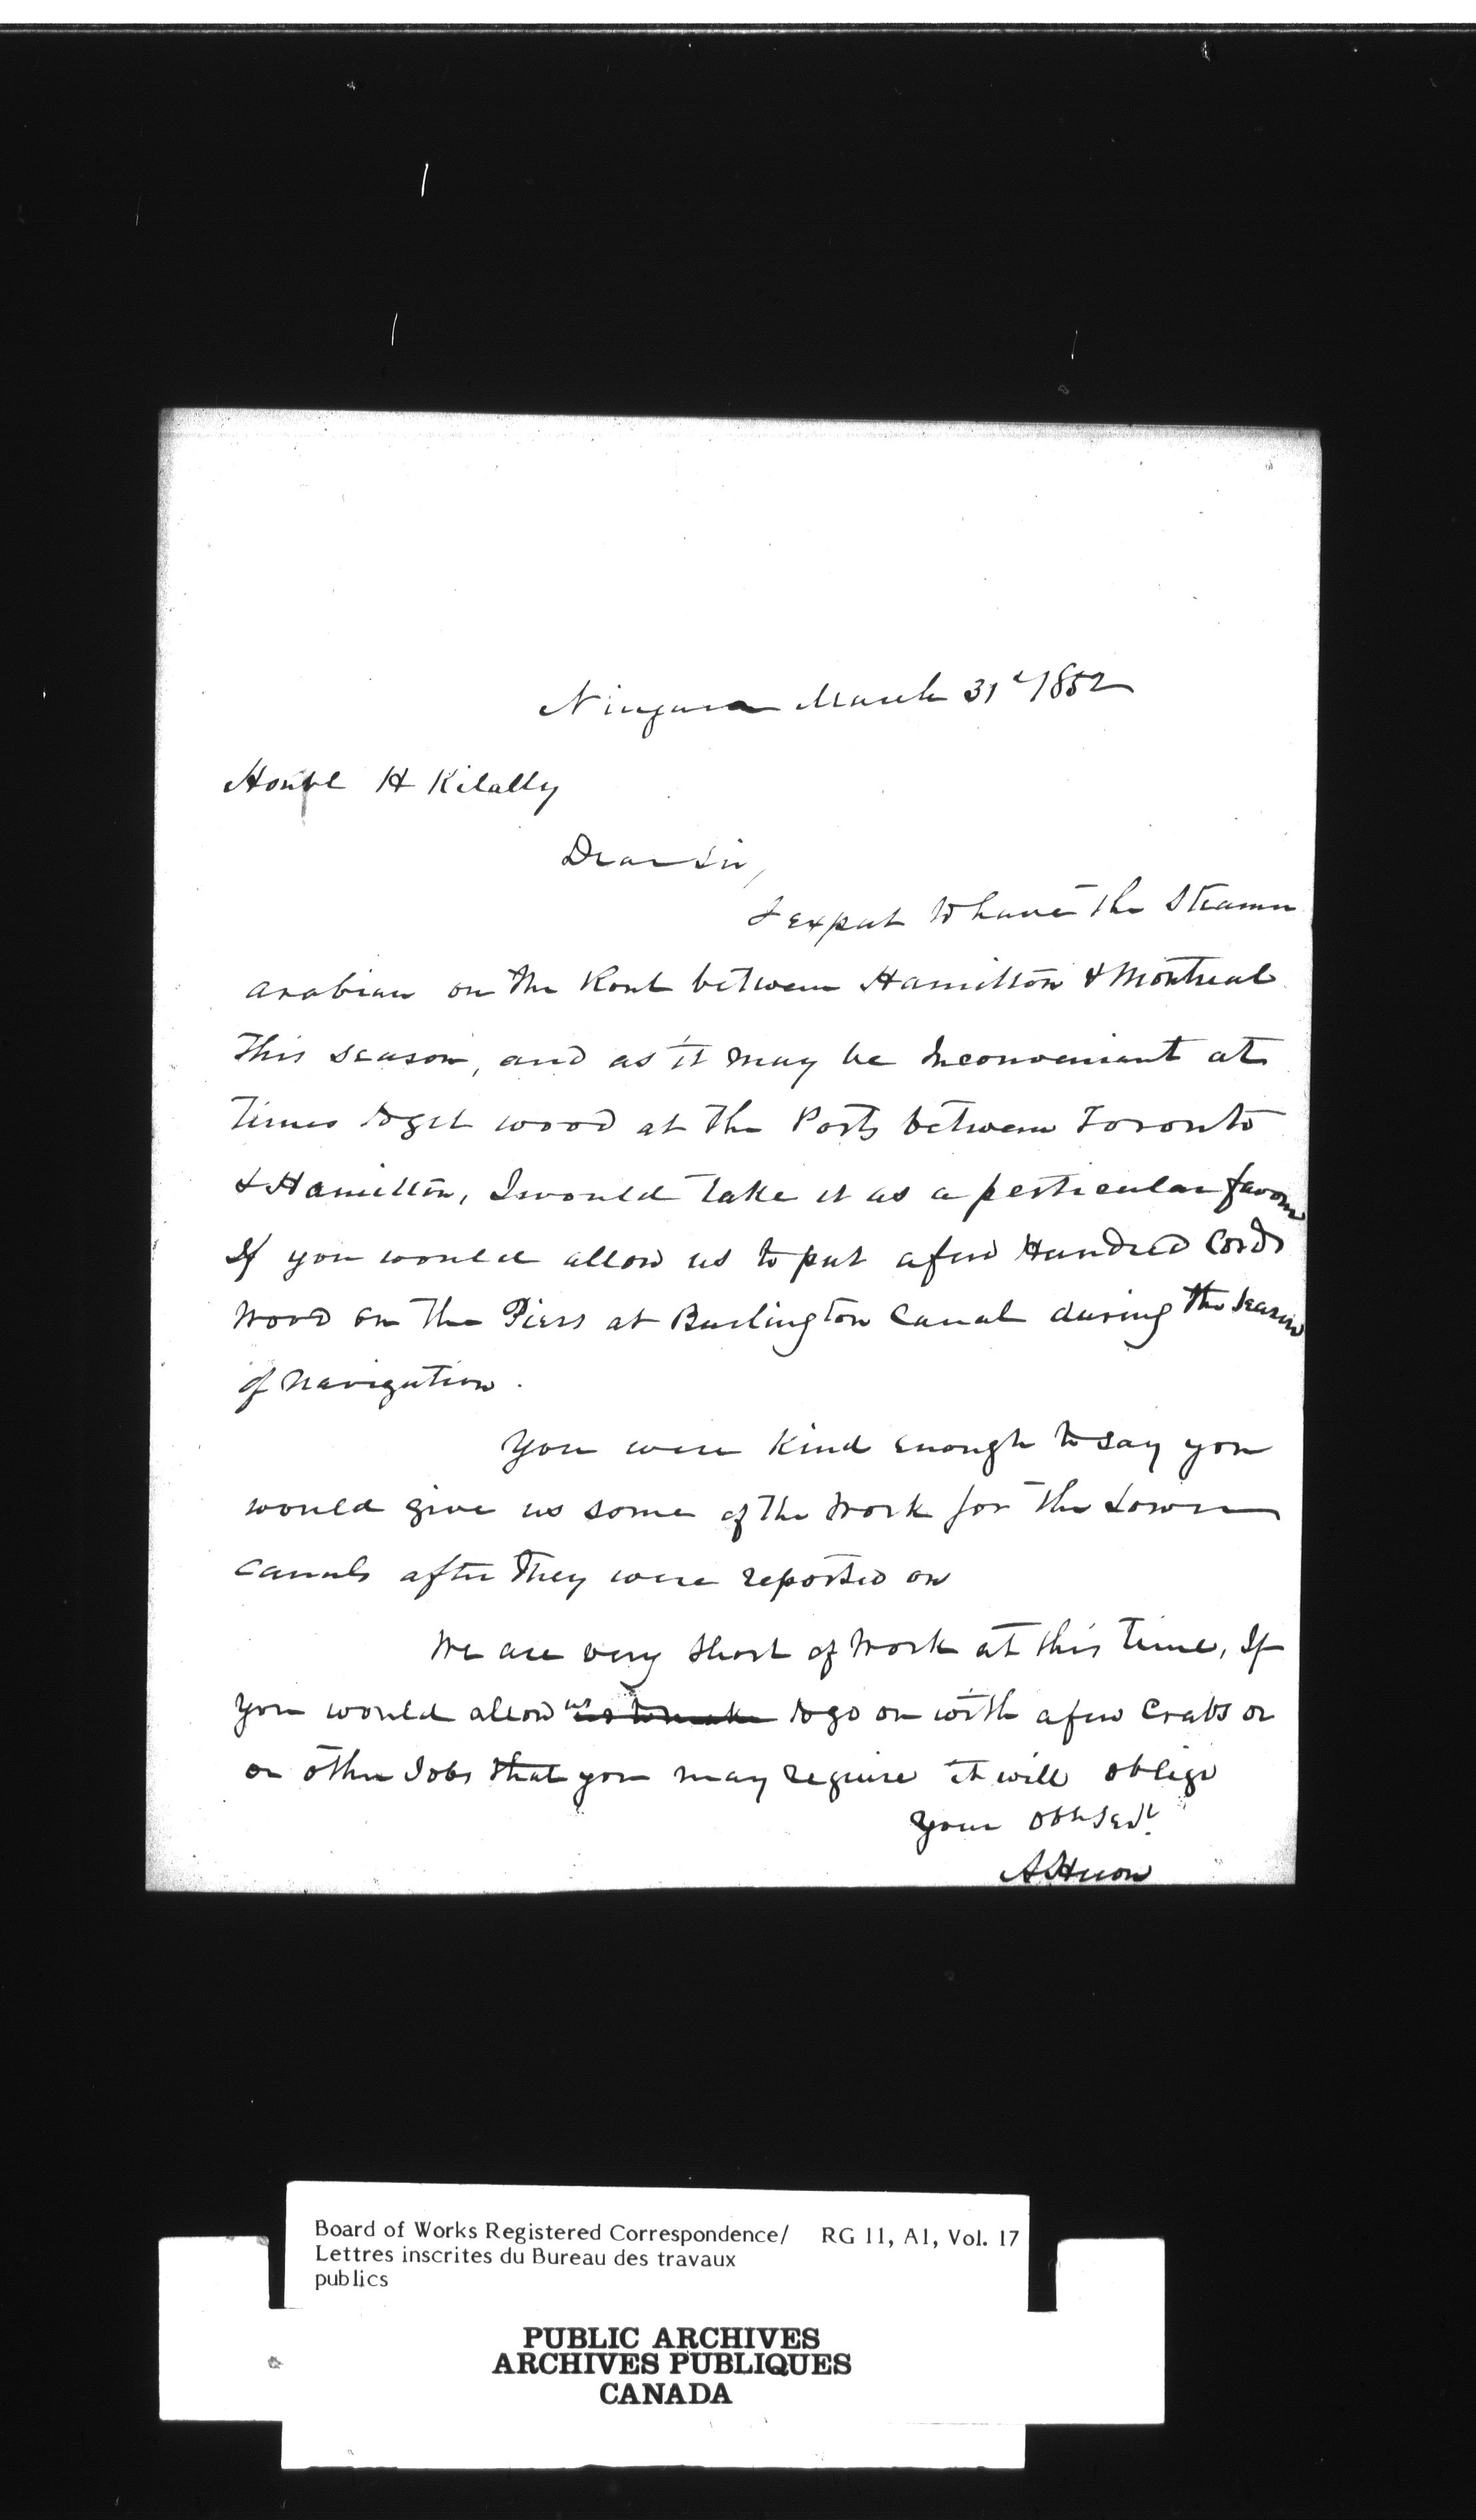 Niagara March 31st 1852
Honble H Kilally
Dear Sir,
I expect to have the Steamer
arabian on the Rout between Hamilton & Montreal
This season, and as it may be Inconveniant at
Times to get wood at the Ports between Toronto
& Hamilton, I would take it as a perticular favour
If you would allow us to put a few Hundred Cords
Wood on the Piers at Burlington Canal during the season
of Navigation.
You were Kind enough to say you
would give us some of the Work for the Lower
Canals after They were reported on
We are very short of Work at this Time, If
you would allow us to go on with a few Crabs or
or other Jobs that you may require it will oblige
Your Obt Servt
A. Heron
Board of Works Registered Correspondence/ RG 11, A1, Vol. 17
Lettres inscrites du Bureau des travaux
publics
PUBLIC ARCHIVES
ARCHIVES PUBLIQUES
CANADA